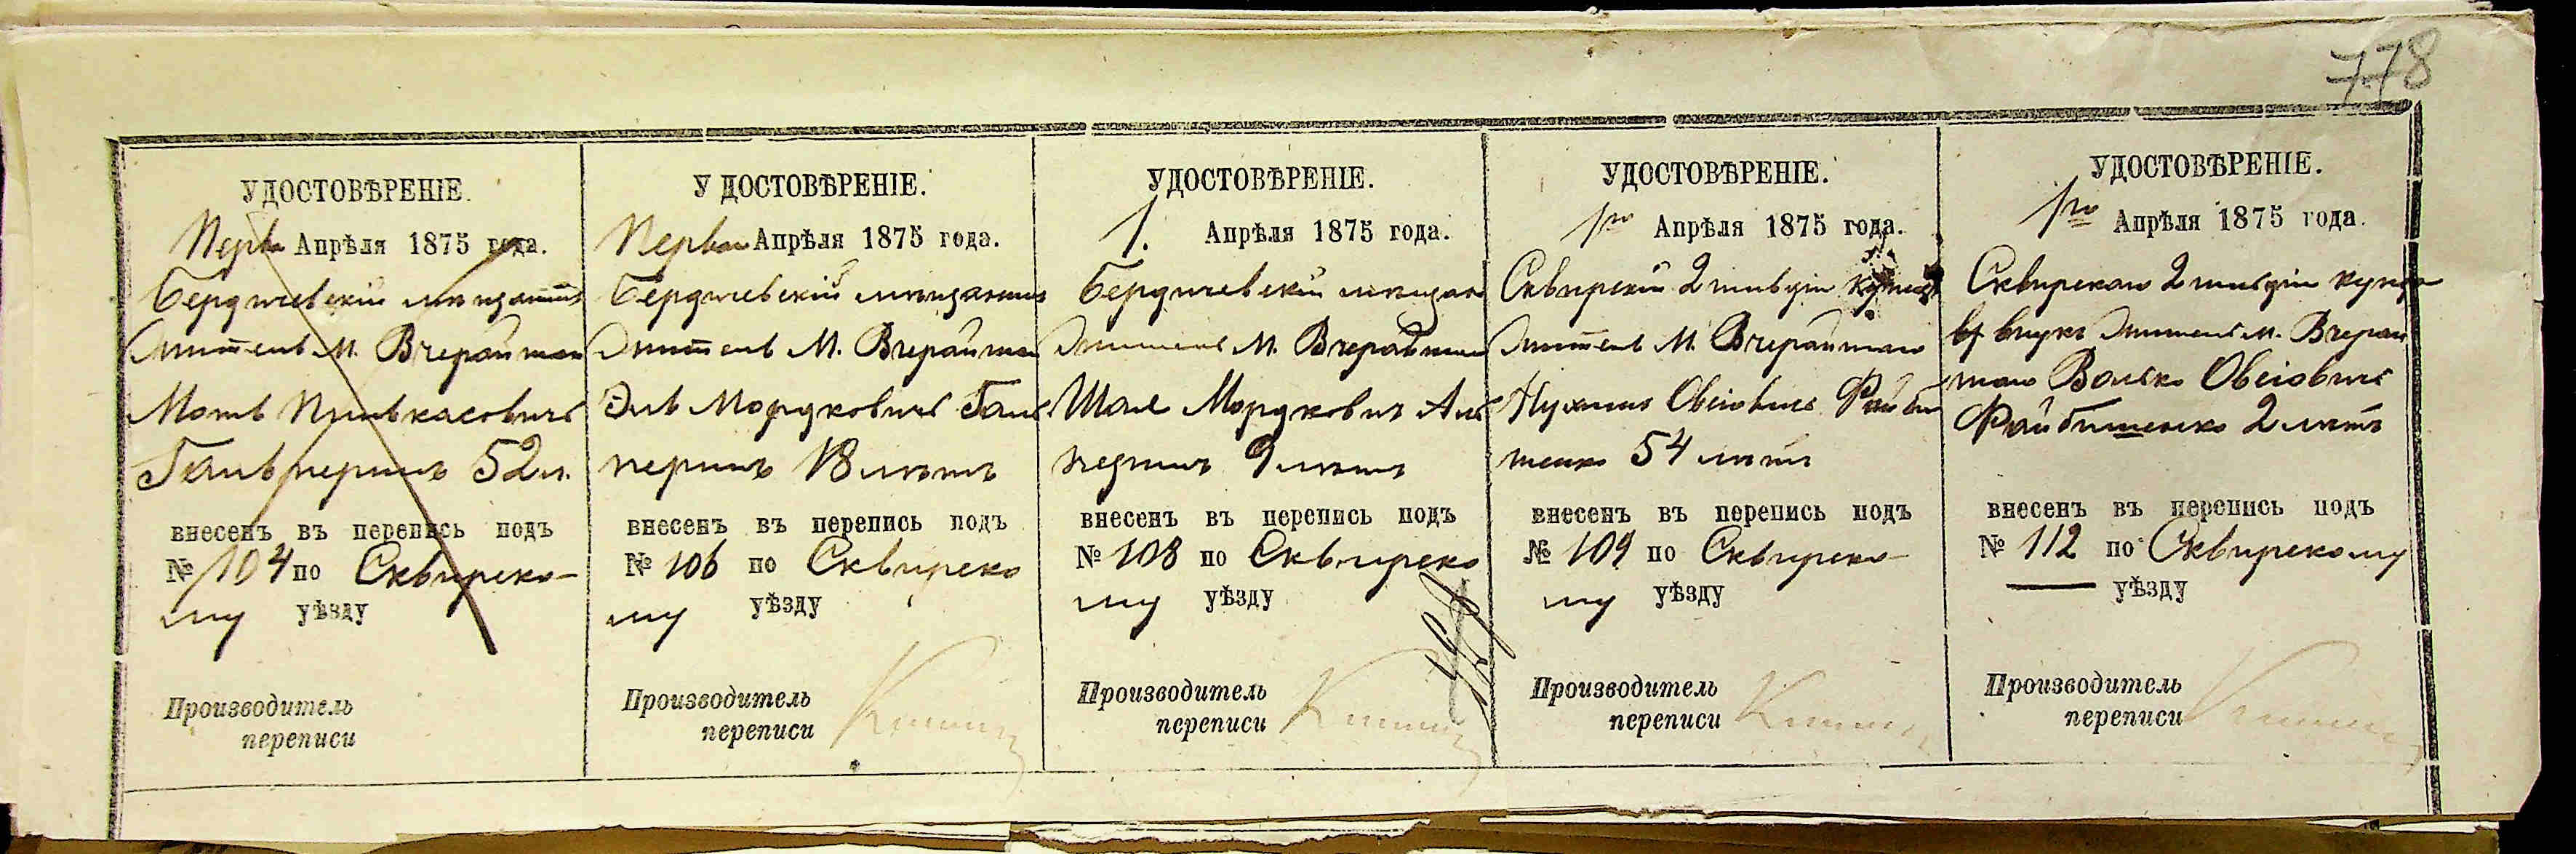 778
УДОСТОВѢРЕНІЕ.
Перва Апрѣля 1875 года.
Бердичевскій мѣщанинъ
житель М. Вчерайшаго
Мотъ Пинькасовичъ
Гальперинъ 52 л.
внесенъ въ перепись подъ
№ 104 по Сквирско-
му уѣзду
Производитель
переписи
У ДОСТОВѢРЕНІЕ.
Перваго Апрѣля 1875 года.
Бердичевскій мѣщанинъ
житель М. Вчерайшаго
Эль Мордковичъ Галь
перинъ 18 лѣтъ
внесенъ въ перепись подъ
№ 106 по Сквирско
му уѣзду
Производитель
переписи
УДОСТОВѢРЕНІЕ.
1. Апрѣля 1875 года.
Бердичевскій мѣщан
житель М. Вчерайшаго
Шае Мордковичъ Аль
перинъ 9 лѣтъ
внесенъ въ перепись подъ
№ 108 по Сквирско
му уѣзду
Производитель
переписи
УДОСТОВѢРЕНІЕ.
1го Апрѣля 1875 года.
Сквирскій 2 гильдіи купец
житель М. Вчерайшаго
Нухимъ Овсіовичъ Файби
шенко 54 лѣтъ
внесенъ въ перепись подъ
№ 109 по Сквирско-
му уѣзду
Производитель
переписи
УДОСТОВѢРЕНІЕ.
1го Апрѣля 1875 года.
Сквирскаго 2 гильдіи купца
внукъ житель м. Вчерай
шаго Волько Овсіовичъ
Файбишенко 2 лѣтъ
внесенъ въ перепись подъ
№ 112 по Сквирскому
уѣзду
Производитель
переписи